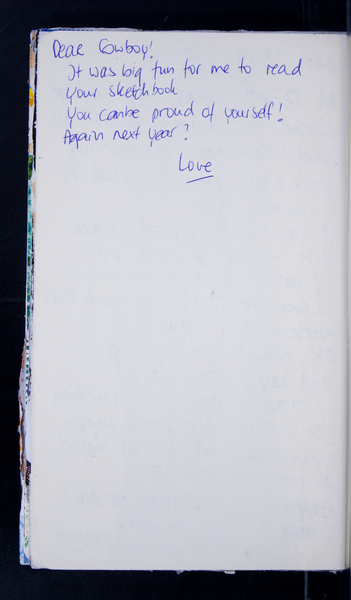 Dear Cowboy!
It was big fun for me to read
your sketchbook
You canbe proud of yourself!
Again next year?
Love